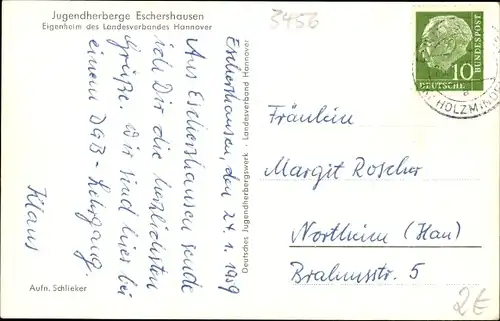 Jugendherberge Eschershausen
Eigenheim des Landesverbandes Hannover
3456
Eschershausen, den 24.1.1959
Aus Eschershausen sende
ich Dir die herzlichsten
Grüße. Wir sind hier bei
einem DGB-Lehrgang.
Klaus
Aufn. Schlieker
Deutsches Jugendherbergswerk · Landesverband Hannover
10
DEUTSCHE
BUNDESPOST
HOLZMINDEN
Fräulein
Margit Roscher
Northeim (Han)
Brahmsstr. 5
2€